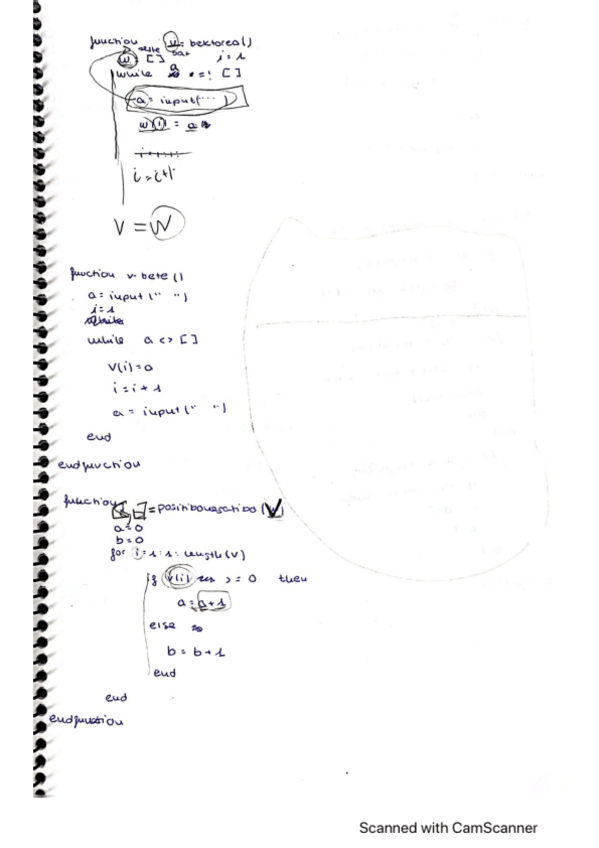 function v = bektorea()
w = [ ] i = 1
while a = ! [ ]
a = input(" ... ")
w(i) = a
i = i+1
V = W
function v = bete ()
a = input (" ")
i = 1
while a <> [ ]
V(i) = a
i = i + 1
a = input (" ")
end
endfunction
function = positibonegatibo (V)
a = 0
b = 0
for i = 1 : 1 : length (V)
if V(i) >= 0 then
a = a + 1
else
b = b + 1
end
end
endfunction
Scanned with CamScanner